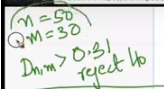 n = 50
m = 30
Dn,m > 0.31
reject Ho